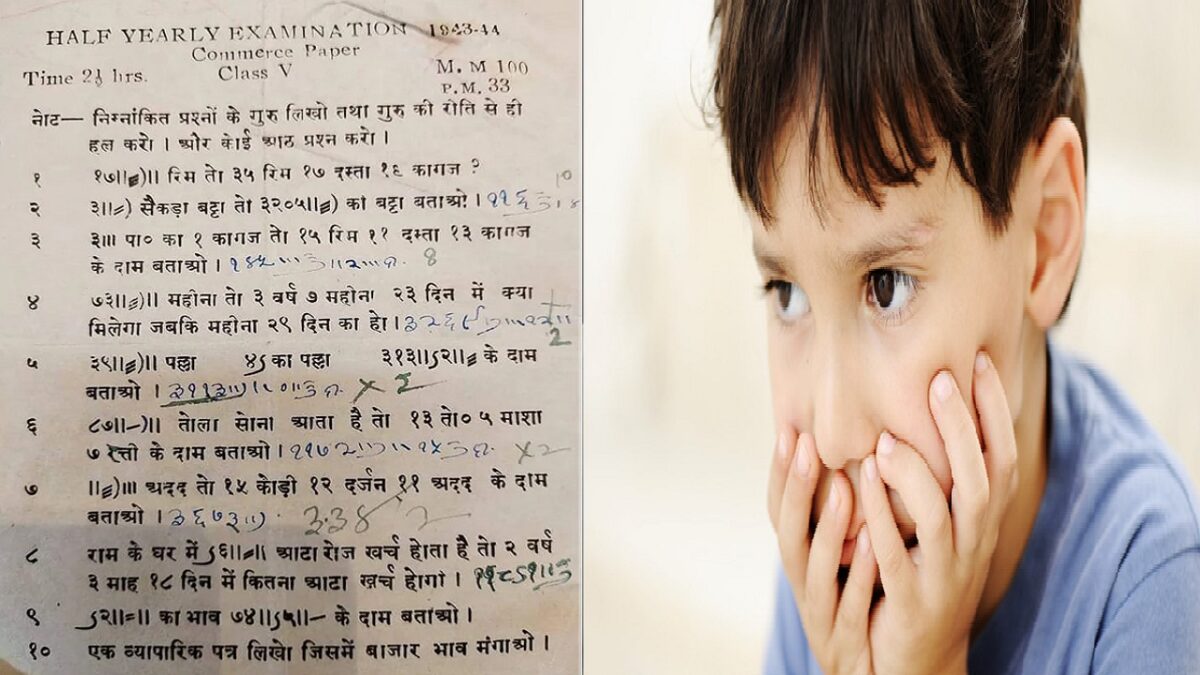 HALF YEARLY EXAMINATION 1943-44
Commerce Paper
Time 2½ hrs. Class V M. M 100
P.M. 33
नोट— निम्नांकित प्रश्नों के गुरु लिखो तथा गुरु की रीति से ही
हल करो । और कोई आठ प्रश्न करो ।
१ १७॥⋟)॥ रिम तो ३५ रिम १७ दस्ता १६ कागज ?
२ ३॥⋟) सैकड़ा बट्टा तो ३२०५॥⋟) का बट्टा बताओ ।
३ ३॥। पा० का १ कागज तो १५ रिम ११ दस्ता १३ कागज
के दाम बताओ । 8
४ ७३॥⋟)॥ महीना तो ३ वर्ष ७ महीना २३ दिन में क्या
मिलेगा जबकि महीना २९ दिन का हो । 2
५ ३९॥⋟)॥ पल्ला ४ऽ का पल्ला ३१३॥ऽ२॥⋟ के दाम
बताओ । × 2
६ ८७॥-)॥ तोला सोना आता है तो १३ तो० ५ माशा
७ रत्ती के दाम बताओ । ×2
७ ॥⋟)॥। अदद तो १५ कोड़ी १२ दर्जन ११ अदद के दाम
बताओ ।
८ राम के घर में ऽ६॥=॥ आटा रोज खर्च होता है तो २ वर्ष
३ माह १८ दिन में कितना आटा खर्च होगा ।
९ ऽ२॥=॥ का भाव ७४॥ऽ५॥- के दाम बताओ ।
१० एक व्यापारिक पत्र लिखो जिसमें बाजार भाव मंगाओ ।